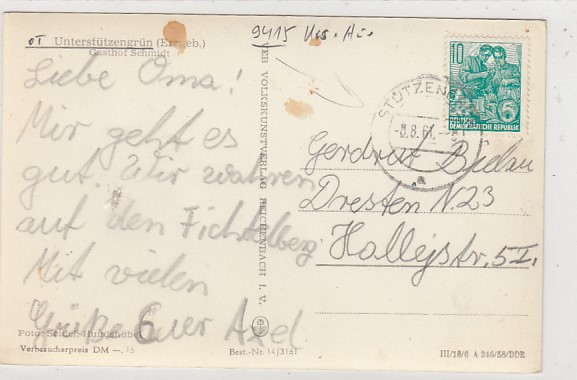 OT Unterstützengrün (Erzgeb.)
Gasthof Schmidt
9415
Liebe Oma!
Mir geht es
gut. Wir wahren
auf den Fichtelberg
Mit vielen
Grüße Euer Axel
Foto:
Verbraucherpreis DM —,15
VEB VOLKSKUNSTVERLAG REICHENBACH I. V.
Best.-Nr. 14/3161
10
DEUTSCHE
DEMOKRATISCHE REPUBLIK
STÜTZENG
-8.8.61.-
a
Gerdraut
Dresten N. 23
Hallejstr. 5 I.
III/18/6 A 246/58/DDR